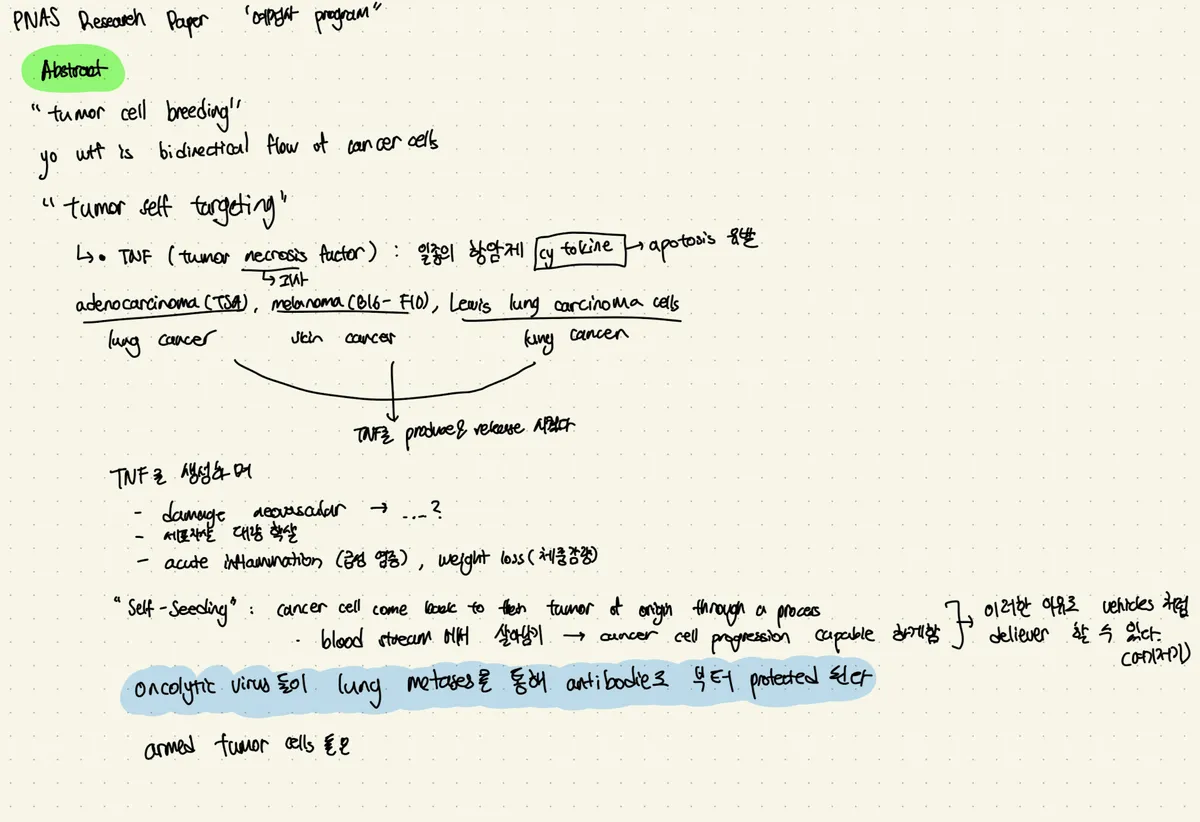 PNAS Research Paper "예명사 program"
Abstract
"tumor cell breeding"
yo wtf is bidirectical flow of cancer cells
"tumor self targeting"
↳• TNF (tumor necrosis factor) : 일종의 항암제 cytokine → apotosis 유발
↳ 괴사
adenocarcinoma (TSA), melanoma (B16-F10), Lewis lung carcinoma cells
lung cancer skin cancer lung cancer
TNF를 produce은 release 시켰다
TNF를 생성하며
- damage neovascular → ...?
- 세포자살 대량 학살
- acute inflammination (급성 염증), weight loss (체중감량)
"Self-Seeding" : cancer cell come back to their tumor of origin through a process
· blood stream 에서 살아남기 → cancer cell progression capable 하게함
→ 이러한 이유로 vehicles 처럼
deliever 할 수 있다.
(여기저기)
oncolytic virus 들이 lung metases을 통해 antibodie로 부터 protected 된다
armed tumor cells 들은